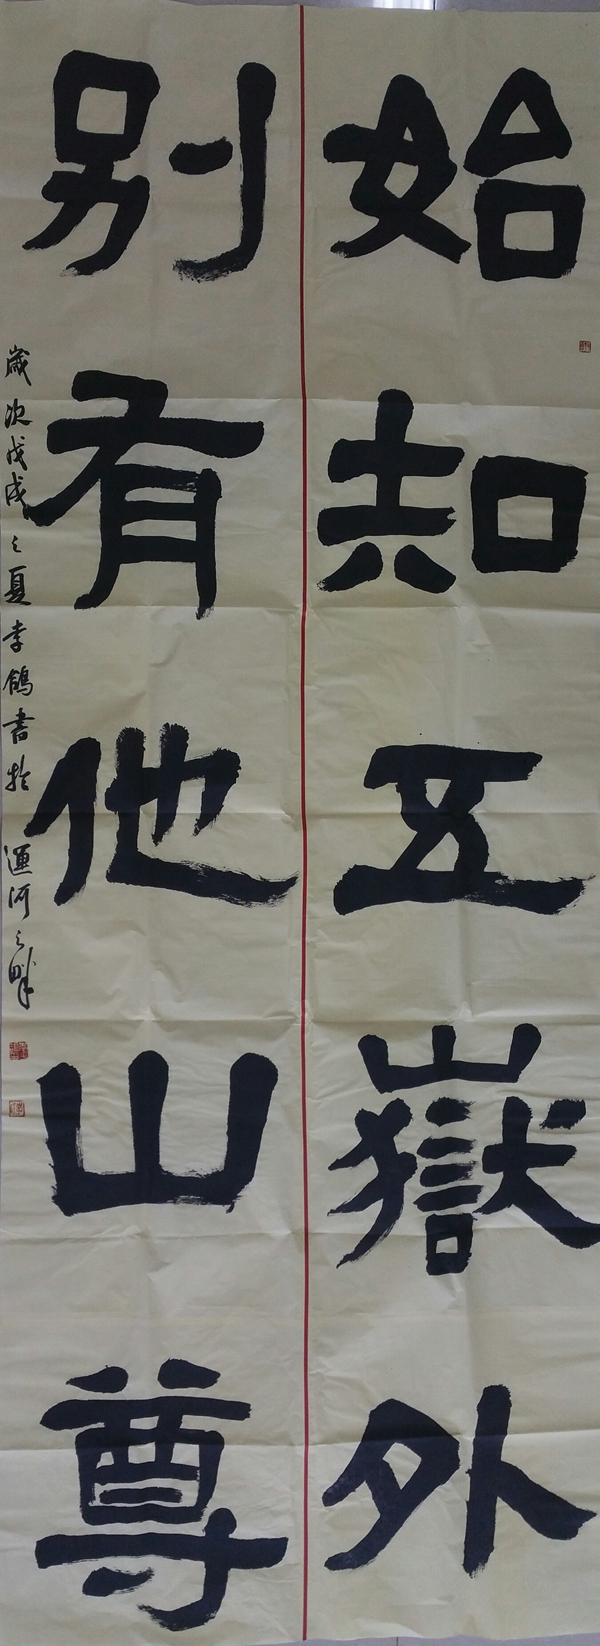 始知五嶽外
別有他山尊
歲次戊戌之夏李鴿書於運河之畔